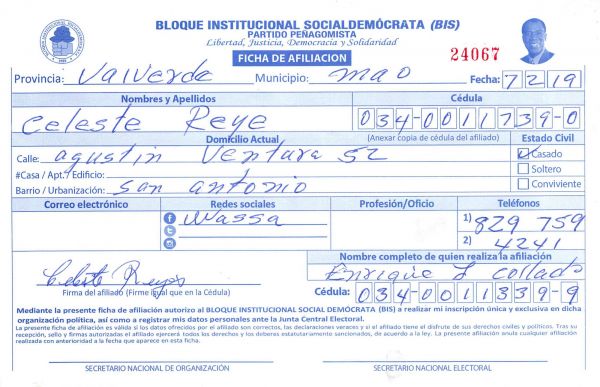 BLOQUE INSTITUCIONAL SOCIALDEMÓCRATA (BIS)
PARTIDO PEÑAGOMISTA
Libertad, Justicia, Democracia y Solidaridad
FICHA DE AFILIACION
24067
Provincia: Valverde Municipio: mao Fecha: 7 2 19
Nombres y Apellidos Cédula
Celeste Reye 034-0011739-0
Domicilio Actual (Anexar copia de cédula del afiliado) Estado Civil
Calle: agustin Ventura 52 Casado
#Casa / Apt. / Edificio: Soltero
Barrio / Urbanización: San antonio Conviviente
Correo electrónico Redes sociales Profesión/Oficio Teléfonos
Wassa 1) 829 759
2) 4241
Nombre completo de quien realiza la afiliación
Celeste Reyes Enrique J collado
Firma del afiliado (Firme igual que en la Cédula) Cédula: 034-0011339-9
Mediante la presente ficha de afiliación autorizo al BLOQUE INSTITUCIONAL SOCIAL DEMÓCRATA (BIS) a realizar mi inscripción única y exclusiva en dicha
organización política, así como a registrar mis datos personales ante la Junta Central Electoral.
La presente ficha de afiliación es válida si los datos ofrecidos por el afiliado son correctos, las declaraciones veraces y si el afiliado tiene el disfrute de sus derechos civiles y políticos. Tras su
recepción, sello y firmas autorizadas el afiliado ejercerá todos los derechos y los deberes estatutariamente sancionados, de acuerdo a la ley. La presente afiliación anula cualquier afiliación
realizada con anterioridad a la fecha que aparece en esta ficha.
SECRETARIO NACIONAL DE ORGANIZACIÓN SECRETARIO NACIONAL ELECTORAL